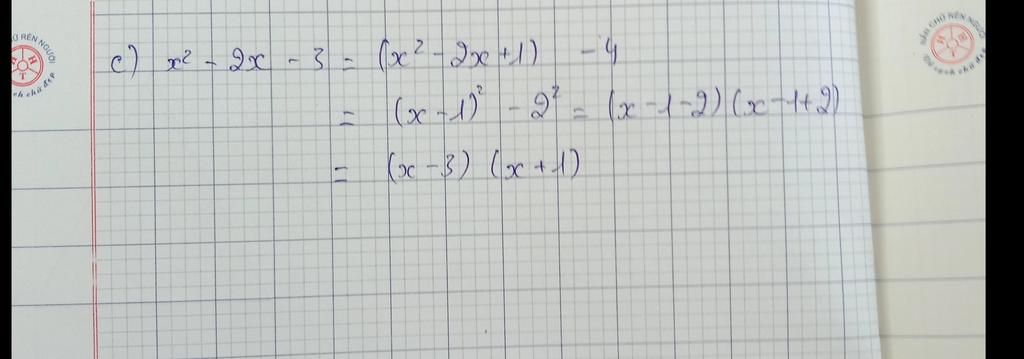 c) x² - 2x - 3 = (x² - 2x + 1) - 4
= (x - 1)² - 2² = (x - 1 - 2) (x - 1 + 2)
= (x - 3) (x + 1)